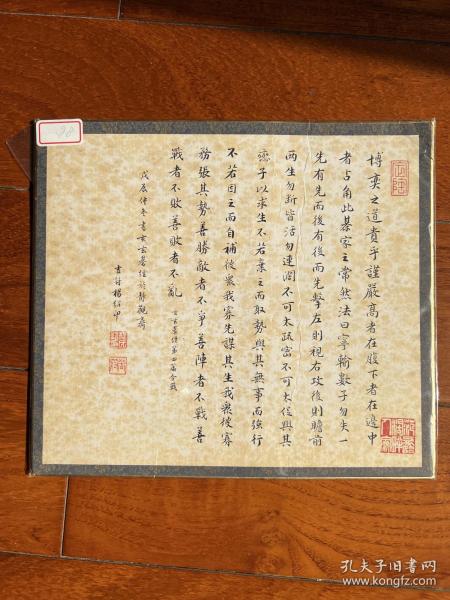 博奕之道貴乎謹嚴高者在腹下者在邊中
者占角此棊家之常然法曰寧輸數子勿失一
先有先而後有後而先擊左則視右攻後則瞻前
兩生勿斷皆活勿連闊不可太疏密不可太促與其
戀子以求生不若棄之而取勢與其無事而強行
不若因之而自補彼眾我寡先謀其生我眾彼寡
務張其勢善勝敵者不爭善陣者不戰善
戰者不敗善敗者不亂
玄玄棊經第四篇合戰
戊辰仲冬書玄玄棊經於靜觀齋
98
孔夫子旧书网
www.kongfz.com